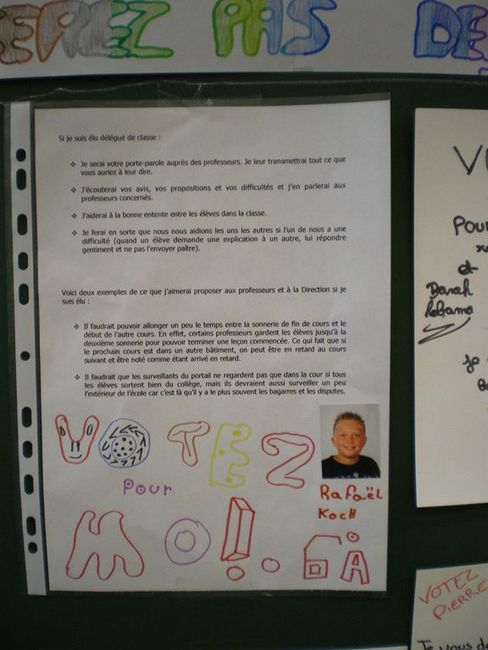 EREZ PAS DE
Si je suis élu délégué de classe :
❖ Je serai votre porte-parole auprès des professeurs. Je leur transmettrai tout ce que
vous auriez à leur dire.
❖ J'écouterai vos avis, vos propositions et vos difficultés et j'en parlerai aux
professeurs concernés.
❖ J'aiderai à la bonne entente entre les élèves dans la classe.
❖ Je ferai en sorte que nous nous aidions les uns les autres si l'un de nous a une
difficulté (quand un élève demande une explication à un autre, lui répondre
gentiment et ne pas l'envoyer paître).
Voici deux exemples de ce que j'aimerai proposer aux professeurs et à la Direction si je
suis élu :
❖ Il faudrait pouvoir allonger un peu le temps entre la sonnerie de fin de cours et le
début de l'autre cours. En effet, certains professeurs gardent les élèves jusqu'à la
deuxième sonnerie pour pouvoir terminer une leçon commencée. Ce qui fait que si
le prochain cours est dans un autre bâtiment, on peut être en retard au cours
suivant et être noté comme étant arrivé en retard.
❖ Il faudrait que les surveillants du portail ne regardent pas que dans la cour si tous
les élèves sortent bien du collège, mais ils devraient aussi surveiller un peu
l'extérieur de l'école car c'est là qu'il y a le plus souvent les bagarres et les disputes.
VOTEZ
Pour
Rafaël
Koch
MOI!. 6A
V
Pour
et
Barack
Obama
Je
VOTEZ
PIERRE
Je vous de